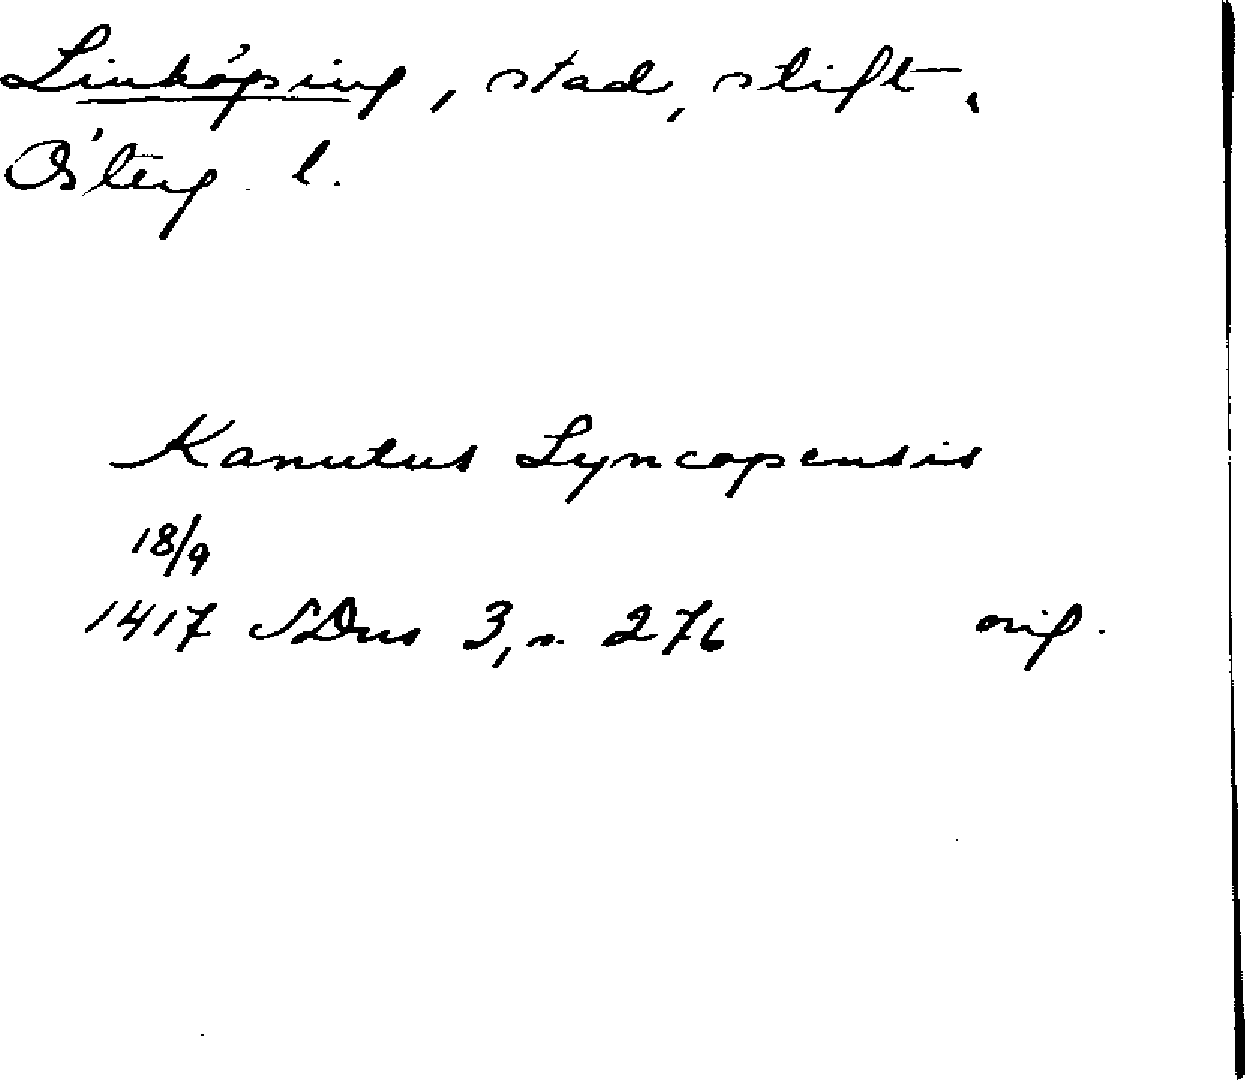 Linköping, stad, stift,
Österg. l.
Kanutus Lyncopensis
18/9
1417 SDns 3, n. 276 orig.